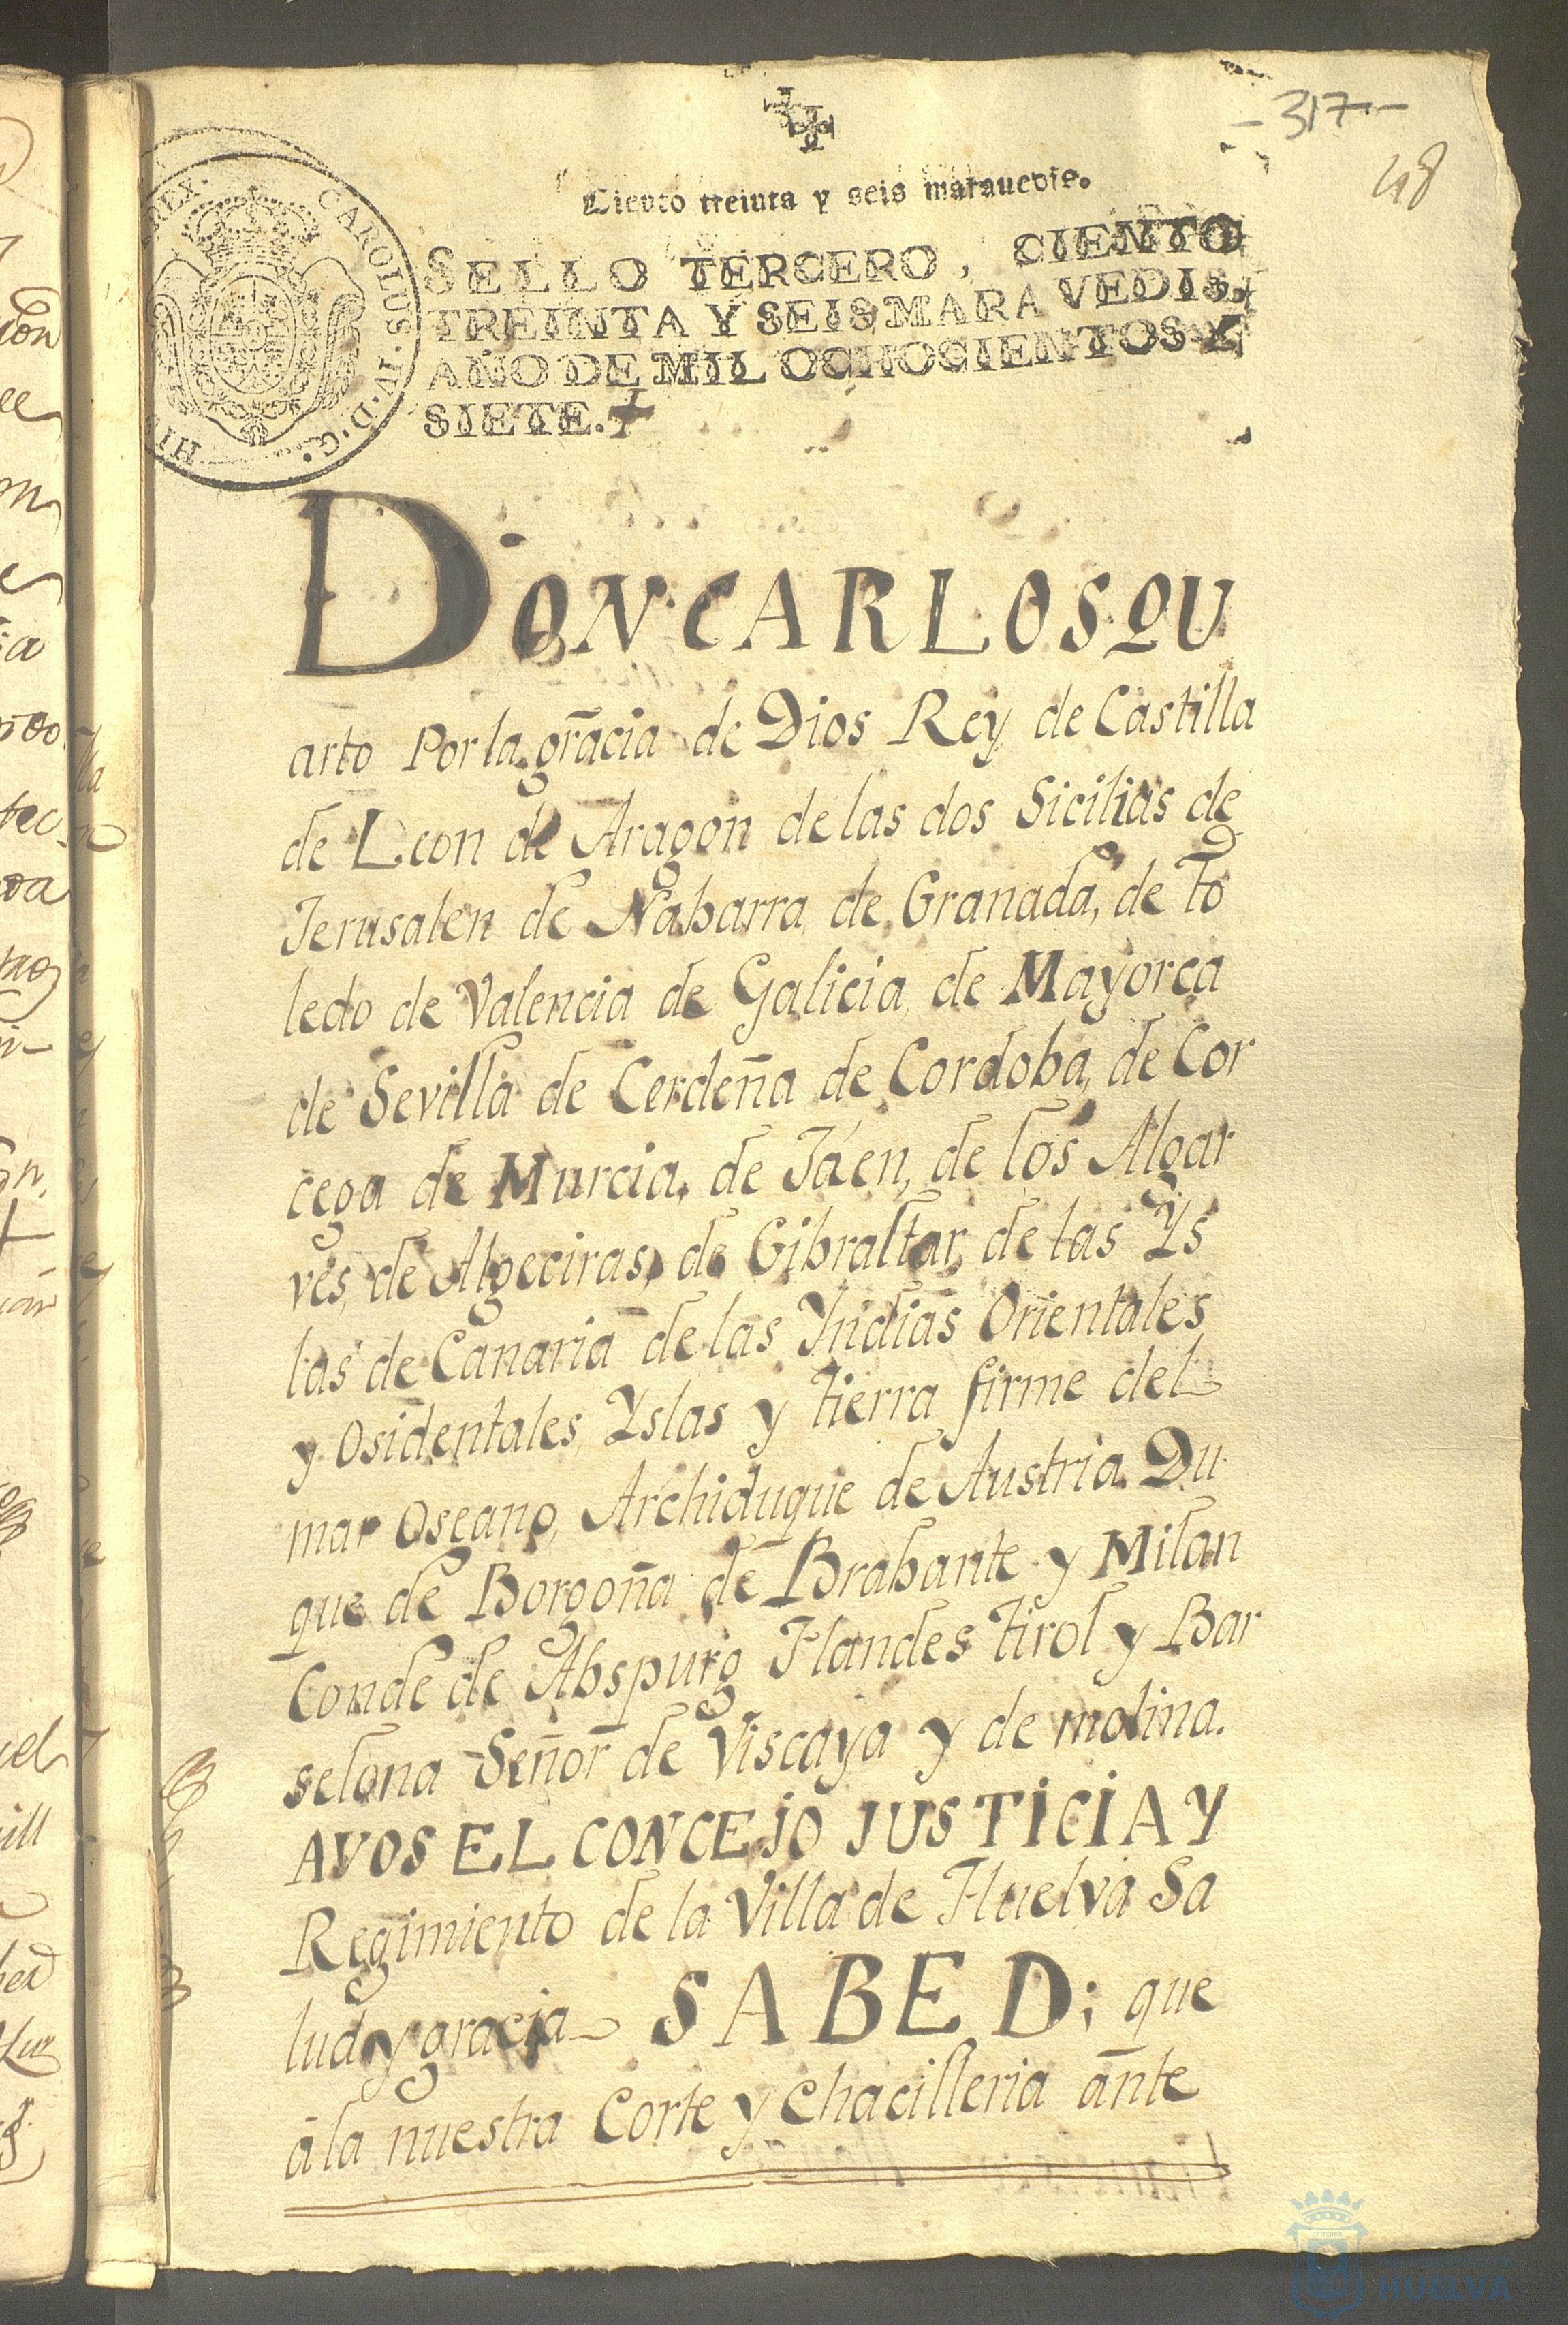 -317-
48
Ciento treinta y seis marauedis.
SELLO TERCERO, CIENTO
TREINTA Y SEIS MARAVEDIS,
AÑO DE MIL OCHOCIENTOS Y
SIETE.
CAROLUS·IV·D·G· HIS REX·
DON CARLOS QU
arto Por la grãcia de Dios Rey de Castilla
de Leon de Aragon de las dos Sicilias de
Jerusalen de Nabarra, de Granada, de To
ledo de Valencia de Galicia, de Mayorca
de Sevilla de Cerdeña de Cordoba, de Cor
cega de Murcia, de Jáen, de los Algar
ves, de Algeciras, de Gibraltar, de las Ys
las de Canaria de las Yndias Orientales
y Osidentales, Yslas y tierra firme del
mar Oseano, Archiduque de Austria. Du
que de Borgoña de Brabante y Milan
Conde de Abspurg Flandes Tirol y Bar
selona Señor de Viscaya y de molina.
AVOS EL CONCEJO JUSTICIA Y
Regimiento de la Villa de Huelva Sa
lud y gracia SABED; que
á la nuestra Corte y chacilleria ante
HUELVA